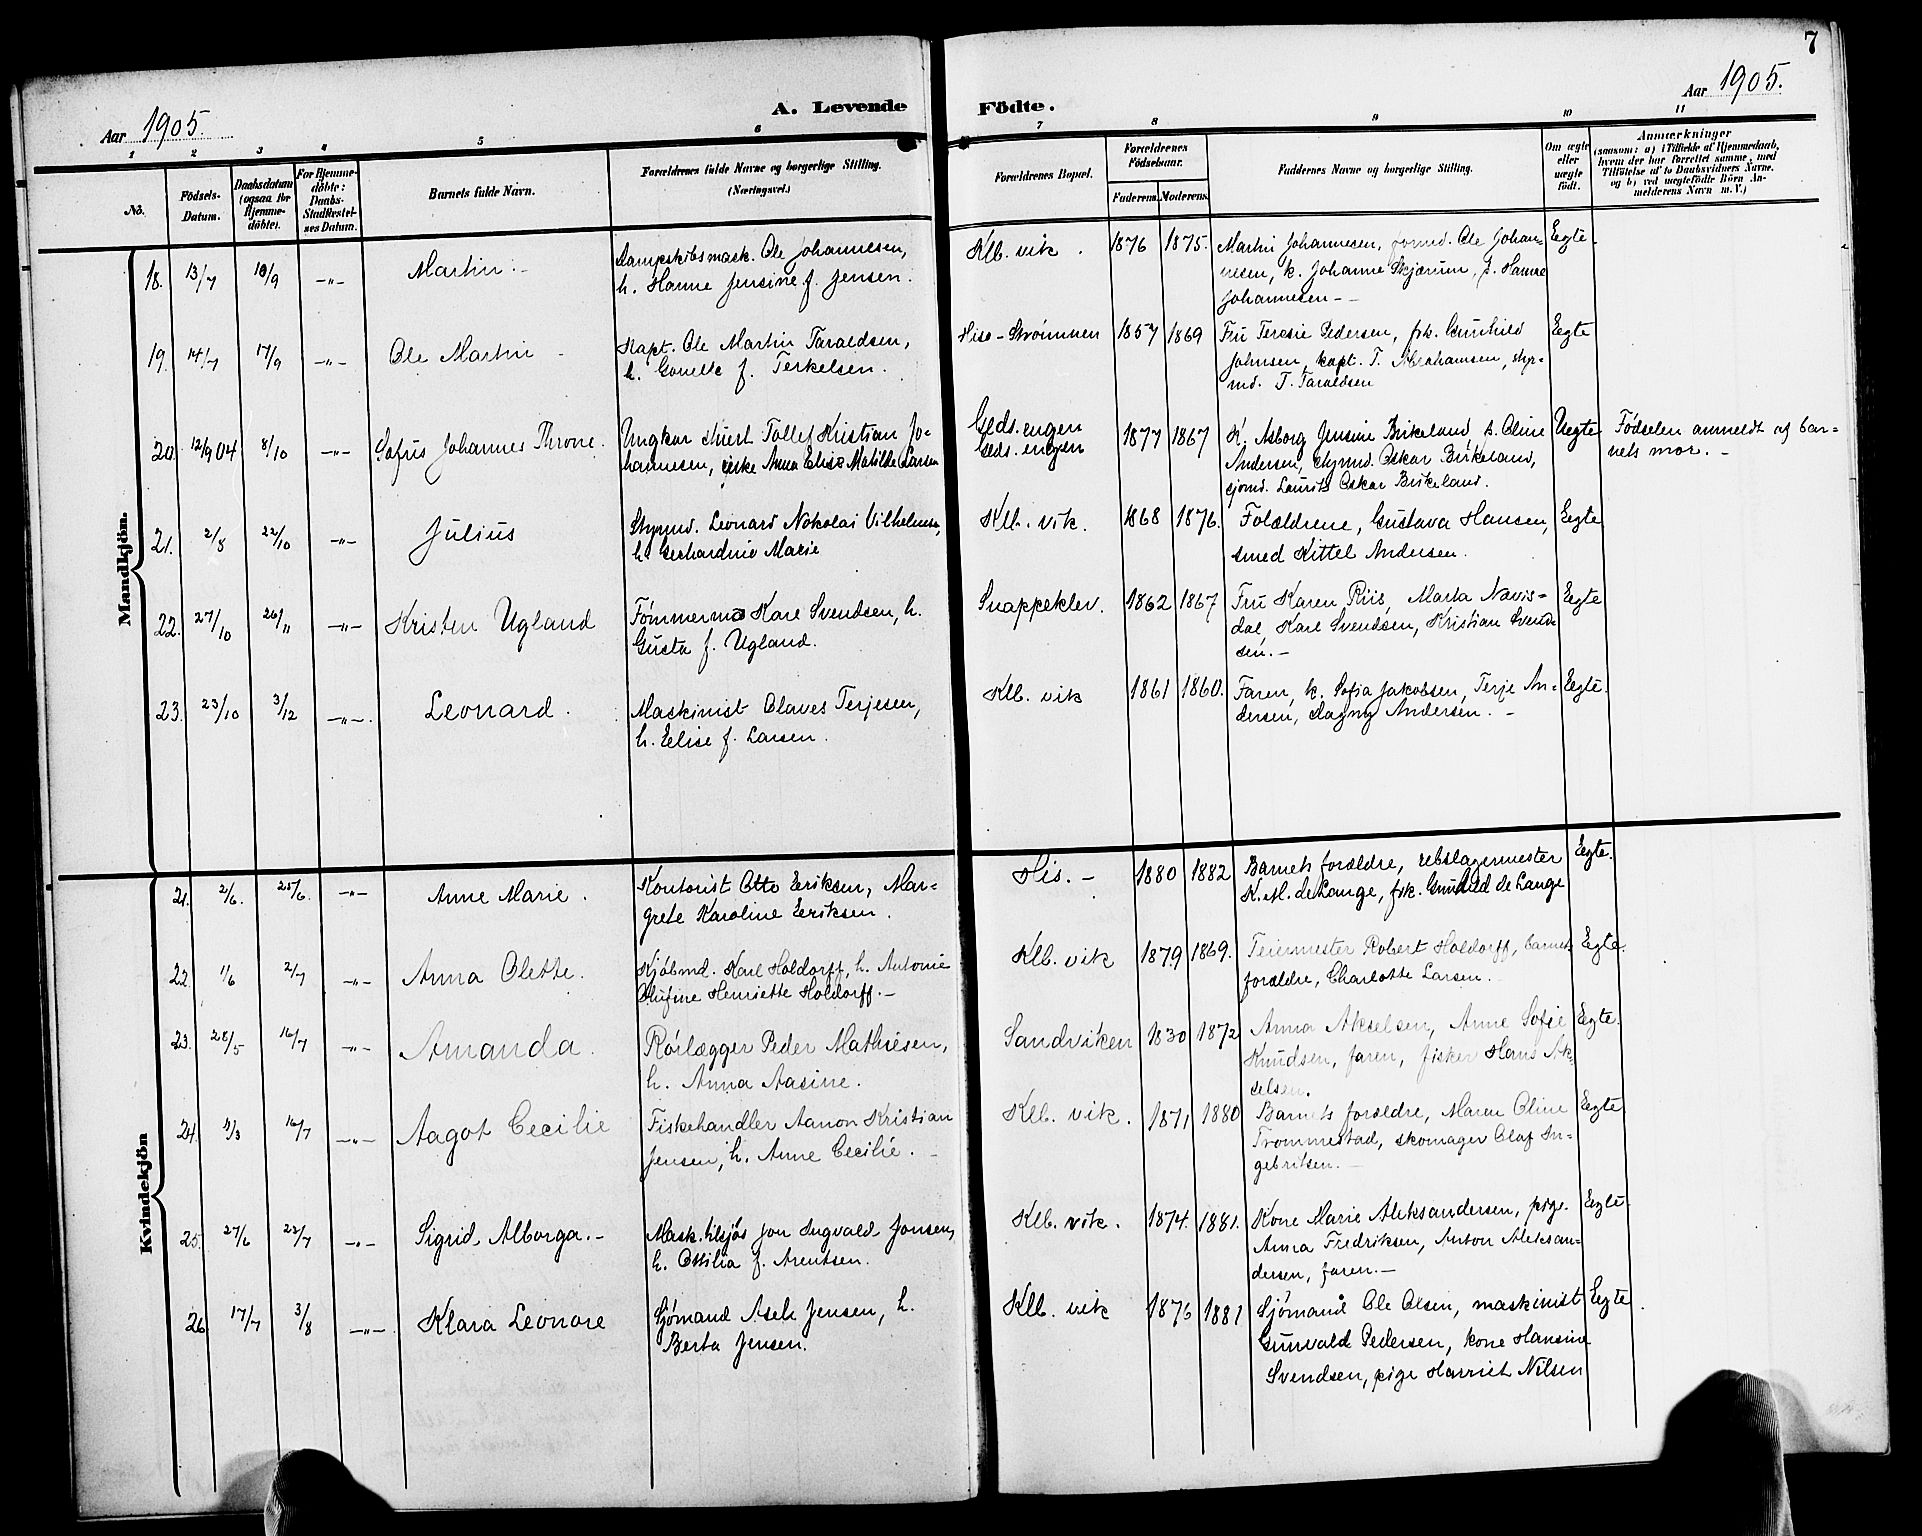 7
Aar 1905.
A. Levende
Födte.
Aar 1905.
1 2 3 4 5 6 7 8 9 10 11
No.
Födsels-
Datum.
Daabsdatum
(ogsaa for
Hjemme-
döbte).
For Hjemme-
döbte:
Daabs-
Stadfæstel-
ses Datum.
Barnets fulde Navn.
Forældrenes fulde Navne og borgerlige Stilling.
(Næringsvei.)
Forældrenes Bopæl.
Forældrenes
Födselsaar.
Faderens. Moderens.
Faddernes Navne og borgerlige Stilling.
Om ægte
eller
uægte
født.
Anmærkninger
(saasom: a) i Tilfælde af Hjemmedaab,
hvem der har forrettet samme, med
Tilföielse af to Daabsvidners Navne,
og b) ved uægtefödte Börn An-
melderens Navn m. V.)
Mandkjön.
18. 13/7 10/9 -"- Martin.-
Dampskibsmask. Ole Johannesen,
h. Hanne Jensine f. Jensen.
Klb. vik. 1876 1875.
Martin Johannesen, formd. Ole Johan-
nesen, k. Johanne Skjærum, p. Hanne
Johannesen--
Eegte.
19. 14/7 17/9 -"- Ole Martin -
Kapt. Ole Martin Taraldsen,
h. Gonelle f. Terkelsen.
Hisø-Strømmen 1857 1869
Fru Teresie Pedersen, frk. Gunhild
Johnsen, kapt. T. Abrahamsen, styr-
md. T. Taraldsen
Eegte
20. 12/9 04 8/10 -"- Sofus Johannes Throne.
Ungkar Tollef Kristian Jo-
hannesen, Anna Elise Matilde Larsen
Geds. engen
Geds. engen
1877 1867
K. Asborg Jensine Birkeland, k. Oline
Andersen, styrmd. Oskar Birkeland,
sjømd. Laurits Oskar Birkeland.
Uegte
Fødselen anmeldt af bar-
nets mor.-
21. 2/8 22/10 -"- Julius
Styrmd. Leonard Nokolai Vilhelmsen,
h. Gerhardine Marie
Klb. vik. 1868 1876.
Folældrene, Gustava Hansen,
smed Kittel Andersen.
Eegte
22. 27/10 26/11 -"- Kristen Ugland
Tømmermd Karl Svendsen, h.
Gusta f. Ugland.
Snappeklev. 1862 1867
Fru Karen Riis, Marta Navis-
dal, Karl Svendsen, Kristian Svend-
sen.-
Eegte
23. 23/10 3/12 -"-. Leonard.
Maskinist Olaves Terjesen,
h. Eelise f. Larsen.
Klb. vik 1861 1860.
Faren, k. Sofia Jakobsen, Terje An-
dersen, Dagny Andersen.-
Eegte.
Kvindekjön
21. 2/6. 25/6. -"- Anne Marie.
Kontorist Otto Eeriksen, Mar-
grete Karoline Eeriksen.
His.- 1880 1882
Barnets forældre, rebslagermester
K. M. de Lange, frk. Gunhild de Lange
Eegte.
22. 1/6 2/7 -"- Anna Olette.
Kjøbmd. Karl Holdorff, h. Antonie
Olufine Henriette Holdorff.-
Klb. vik 1879 1869.
Feiermester Robert Holdorff, barnets
forældre, Charlotte Larsen.
Eegte.
23. 28/5 16/7 -"- Amanda.
Rørlægger Peder Mathiesen,
h. Anna Aasine.
Sandviken 1830 1872
Anna Akselsen, Anne Sofie
Knudsen, faren, fisker Hans Ak-
selsen.
Eegte.
24. 4/3 16/7 -"- Aagot Cecilie
Fiskehandler Aanon Kristian
Jensen, h. Anne Cecilie.-
Klb. vik. 1871 1880
Barnets forældre, Maren Oline
Trommestad, skomager Olaf In-
gebritsen.-
Eegte
25. 27/6 22/7 -"- Sigrid Alborga.-
Mask. tilsjøs Jon Ingvald Jonsen,
h. Otilia f. Arentsen.
Klb. vik. 1874. 1881.
Kone Marie Aleksandersen, pige
Anna Fredriksen, Anton Aleksan-
dersen, faren.-
Eegte.
26 17/7 3/8 -"-. Klara Leonore
Sjømand Aseh Jensen, h.
Berta Jensen.
Klb. vik 1876 1881
Sjømand Ole Olsen, maskinist
Gunvald Pedersen, kone Hansine
Svendsen, pige Harriet Nilsen
Eegte.